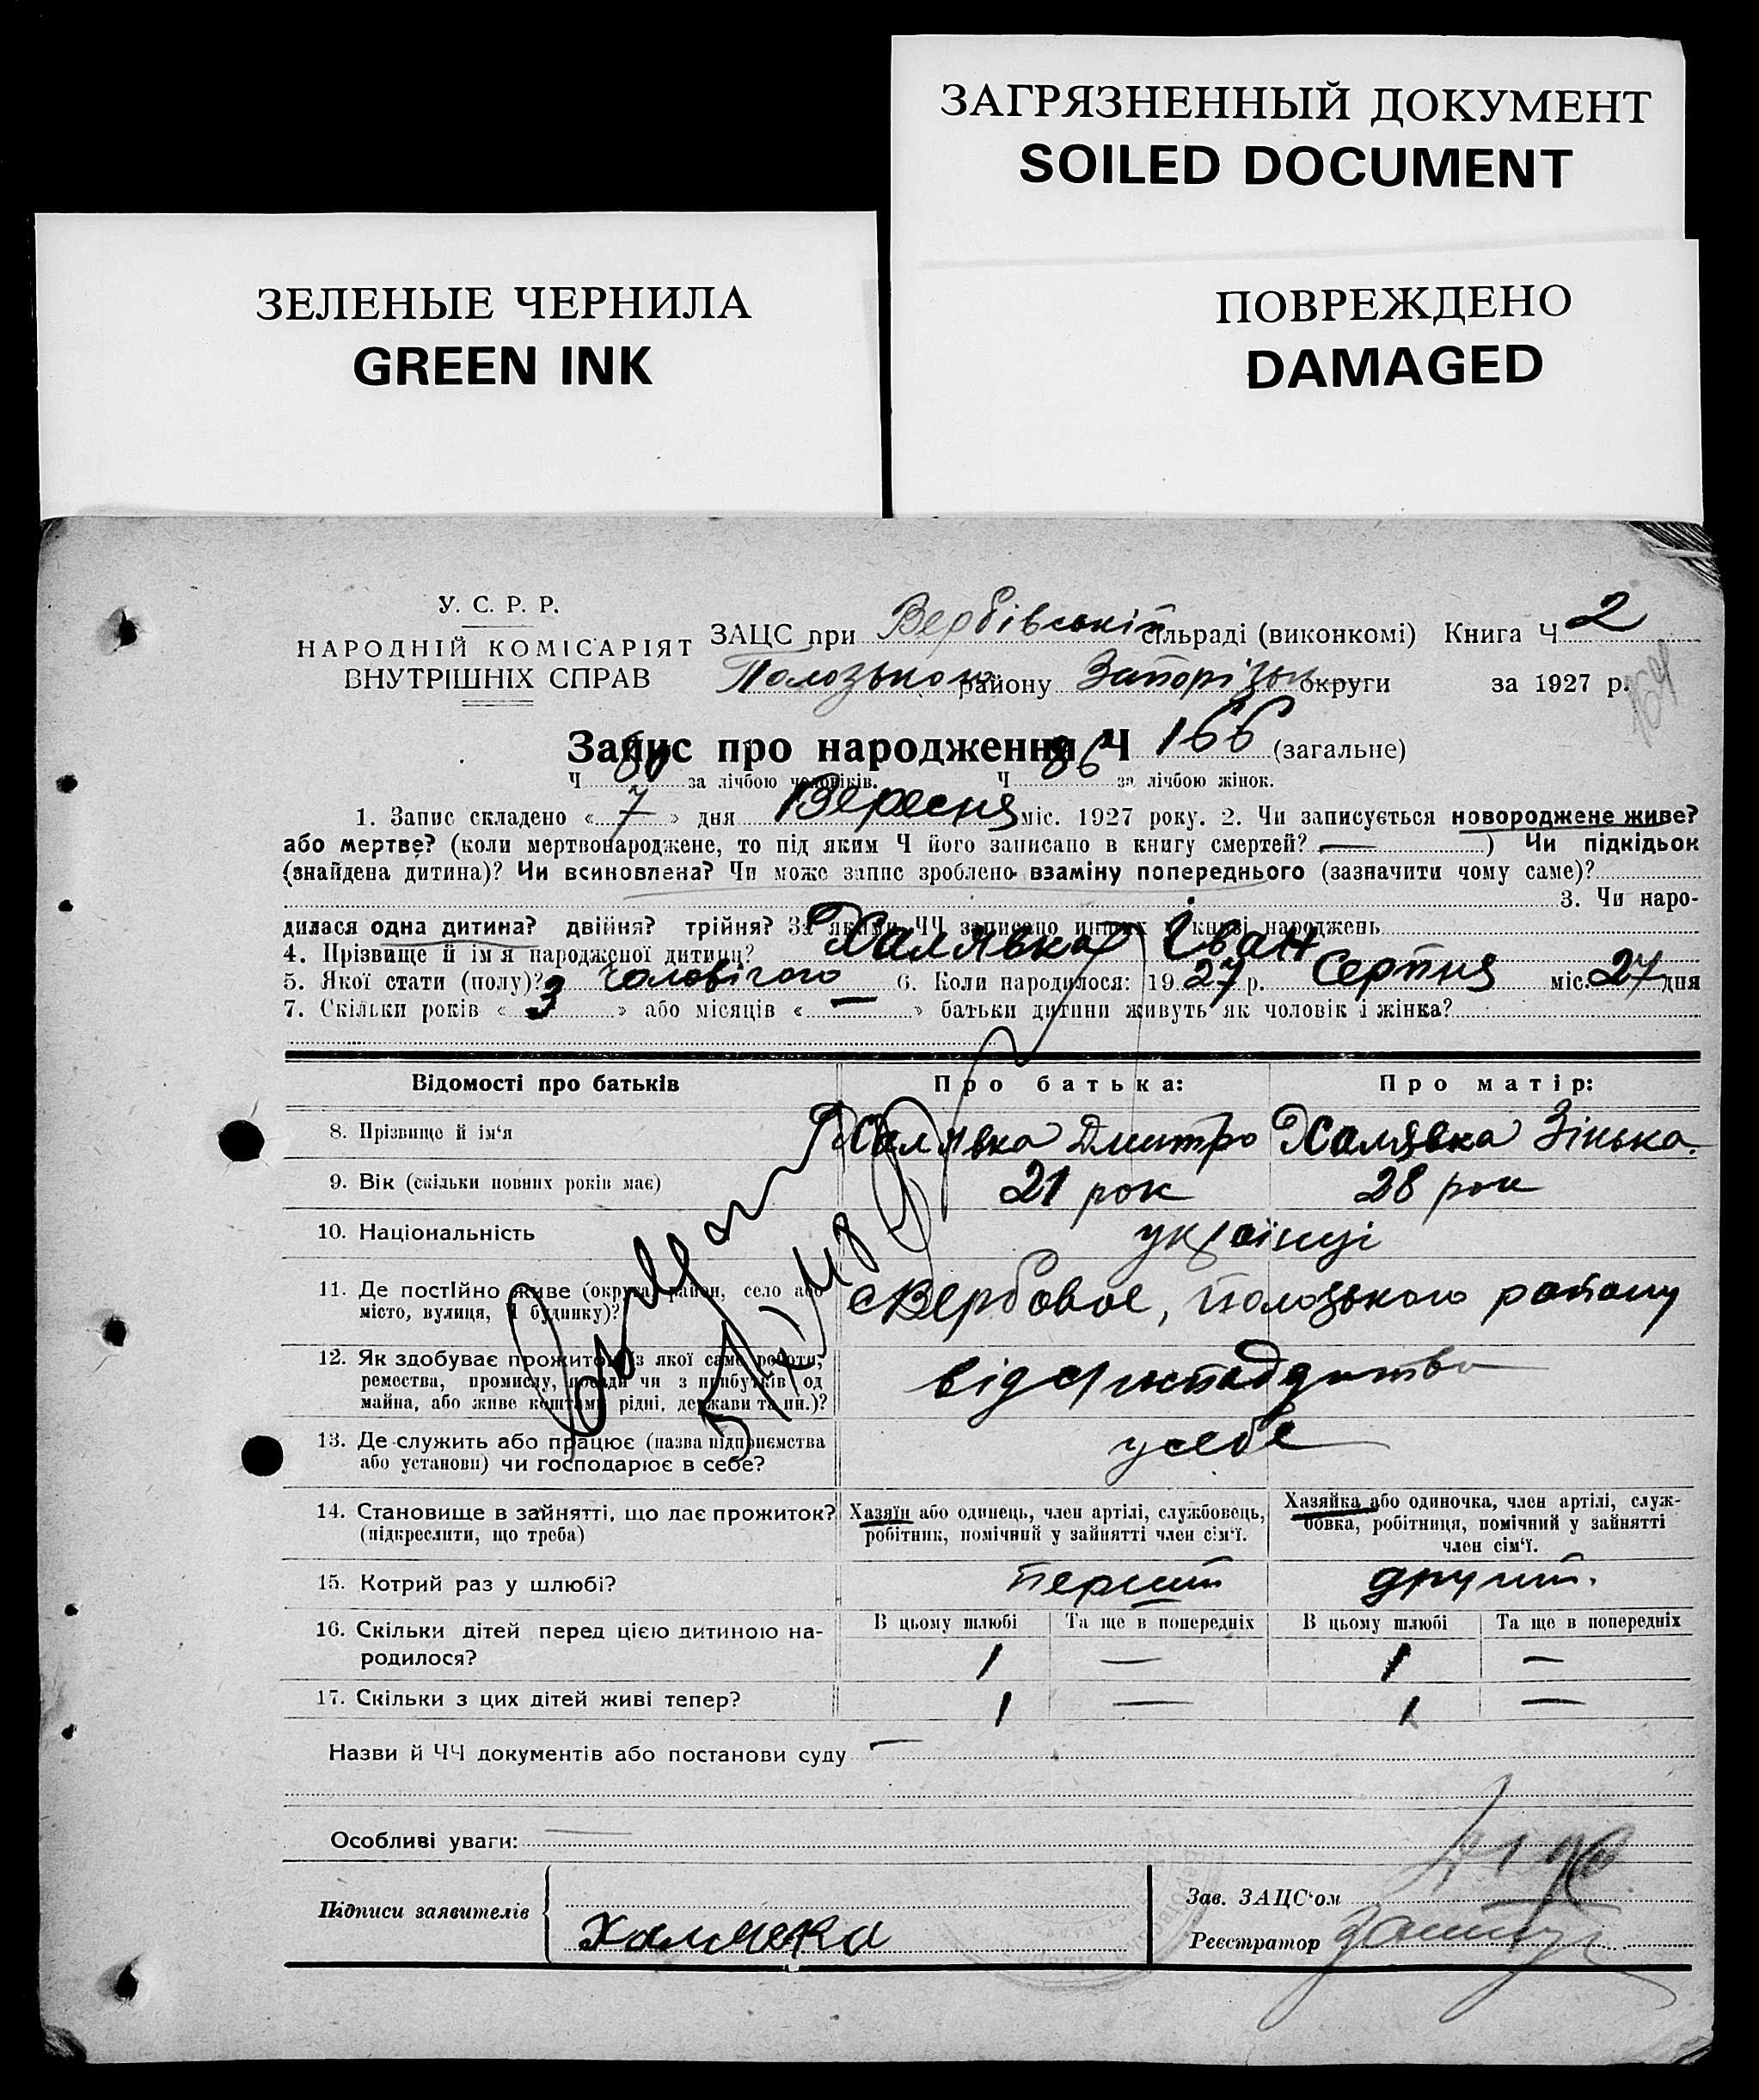 ЗАГРЯЗНЕННЫЙ ДОКУМЕНТ
SOILED DOCUMENT
ЗЕЛЕНЫЕ ЧЕРНИЛА
GREEN INK
ПОВРЕЖДЕНО
DAMAGED
У. С. Р. Р.
НАРОДНІЙ КОМІСАРІЯТ
ВНУТРІШНІХ СПРАВ
ЗАЦС при Вербівській сільраді (виконкомі) Книга Ч 2
Полозького району Запорізьк округи за 1927 р.
Запис про народження Ч 166 (загальне)
Ч 80 за лічбою чоловіків. Ч 86 за лічбою жінок.
1. Запис складено « 7 » дня Вересня міс. 1927 року. 2. Чи записується новороджене живе?
або мертве? (коли мертвонароджене, то під яким Ч його записано в книгу смертей? — ) Чи підкідьок
(знайдена дитина)? Чи всиновлена? Чи може запис зроблено взаміну попереднього (зазначити чому саме)?
3. Чи наро-
дилася одна дитина? двійня? трійня? За якими ЧЧ записано инших у книзі народжень
4. Прізвище й ім'я народженої дитини? Халявка Іван
5. Якої стати (полу)? Чоловічого 6. Коли народилося: 1927 р. Серпня міс. 27 дня
7. Скільки років « 3 » або місяців « — » батьки дитини живуть як чоловік і жінка?
Відомості про батьків
Про батька:
Про матір:
8. Прізвище й ім'я
Халявка Дмитро
Халявка Зінька.
9. Вік (скільки повних років має)
21 рок
28 рок
10. Національність
українці
11. Де постійно живе (округа, район, село або
місто, вулиця, Ч будинку)?
с Вербовое, Полозького району
12. Як здобуває прожиток (з якої саме роботи,
ремества, промислу, посади чи з прибутків од
майна, або живе коштами рідні, держави та ин.)?
13. Де служить або працює (назва підприємства
або установи) чи господарює в себе?
у себе
14. Становище в зайнятті, що дає прожиток?
(підкреслити, що треба)
Хазяїн або одинець, член артілі, службовець,
робітник, помічний у зайнятті член сім'ї.
Хазяйка або одиночка, член артілі, служ-
бовка, робітниця, помічний у зайнятті
член сім'ї.
15. Котрий раз у шлюбі?
перший
другий.
16. Скільки дітей перед цією дитиною на-
родилося?
В цьому шлюбі
Та ще в попередніх
В цьому шлюбі
Та ще в попередніх
1 — 1 —
17. Скільки з цих дітей живі тепер?
1 — 1 —
Назви й ЧЧ документів або постанови суду —
Особливі уваги:
Підписи заявителів
Халявка
Зав. ЗАЦС'ом
Реєстратор